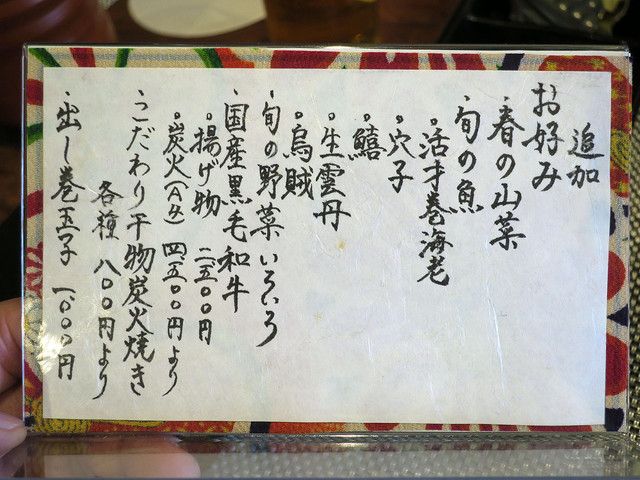 追加
お好み
・春の山菜
・旬の魚
・活才巻海老
・穴子
・鱚
・生雲丹
・烏賊
・旬の野菜いろいろ
・国産黒毛和牛
・揚げ物 二五〇〇円
・炭火(A5) 四、五〇〇円より
・こだわり干物炭火焼き
各種 八〇〇円より
・出し巻玉子 一、〇〇〇円